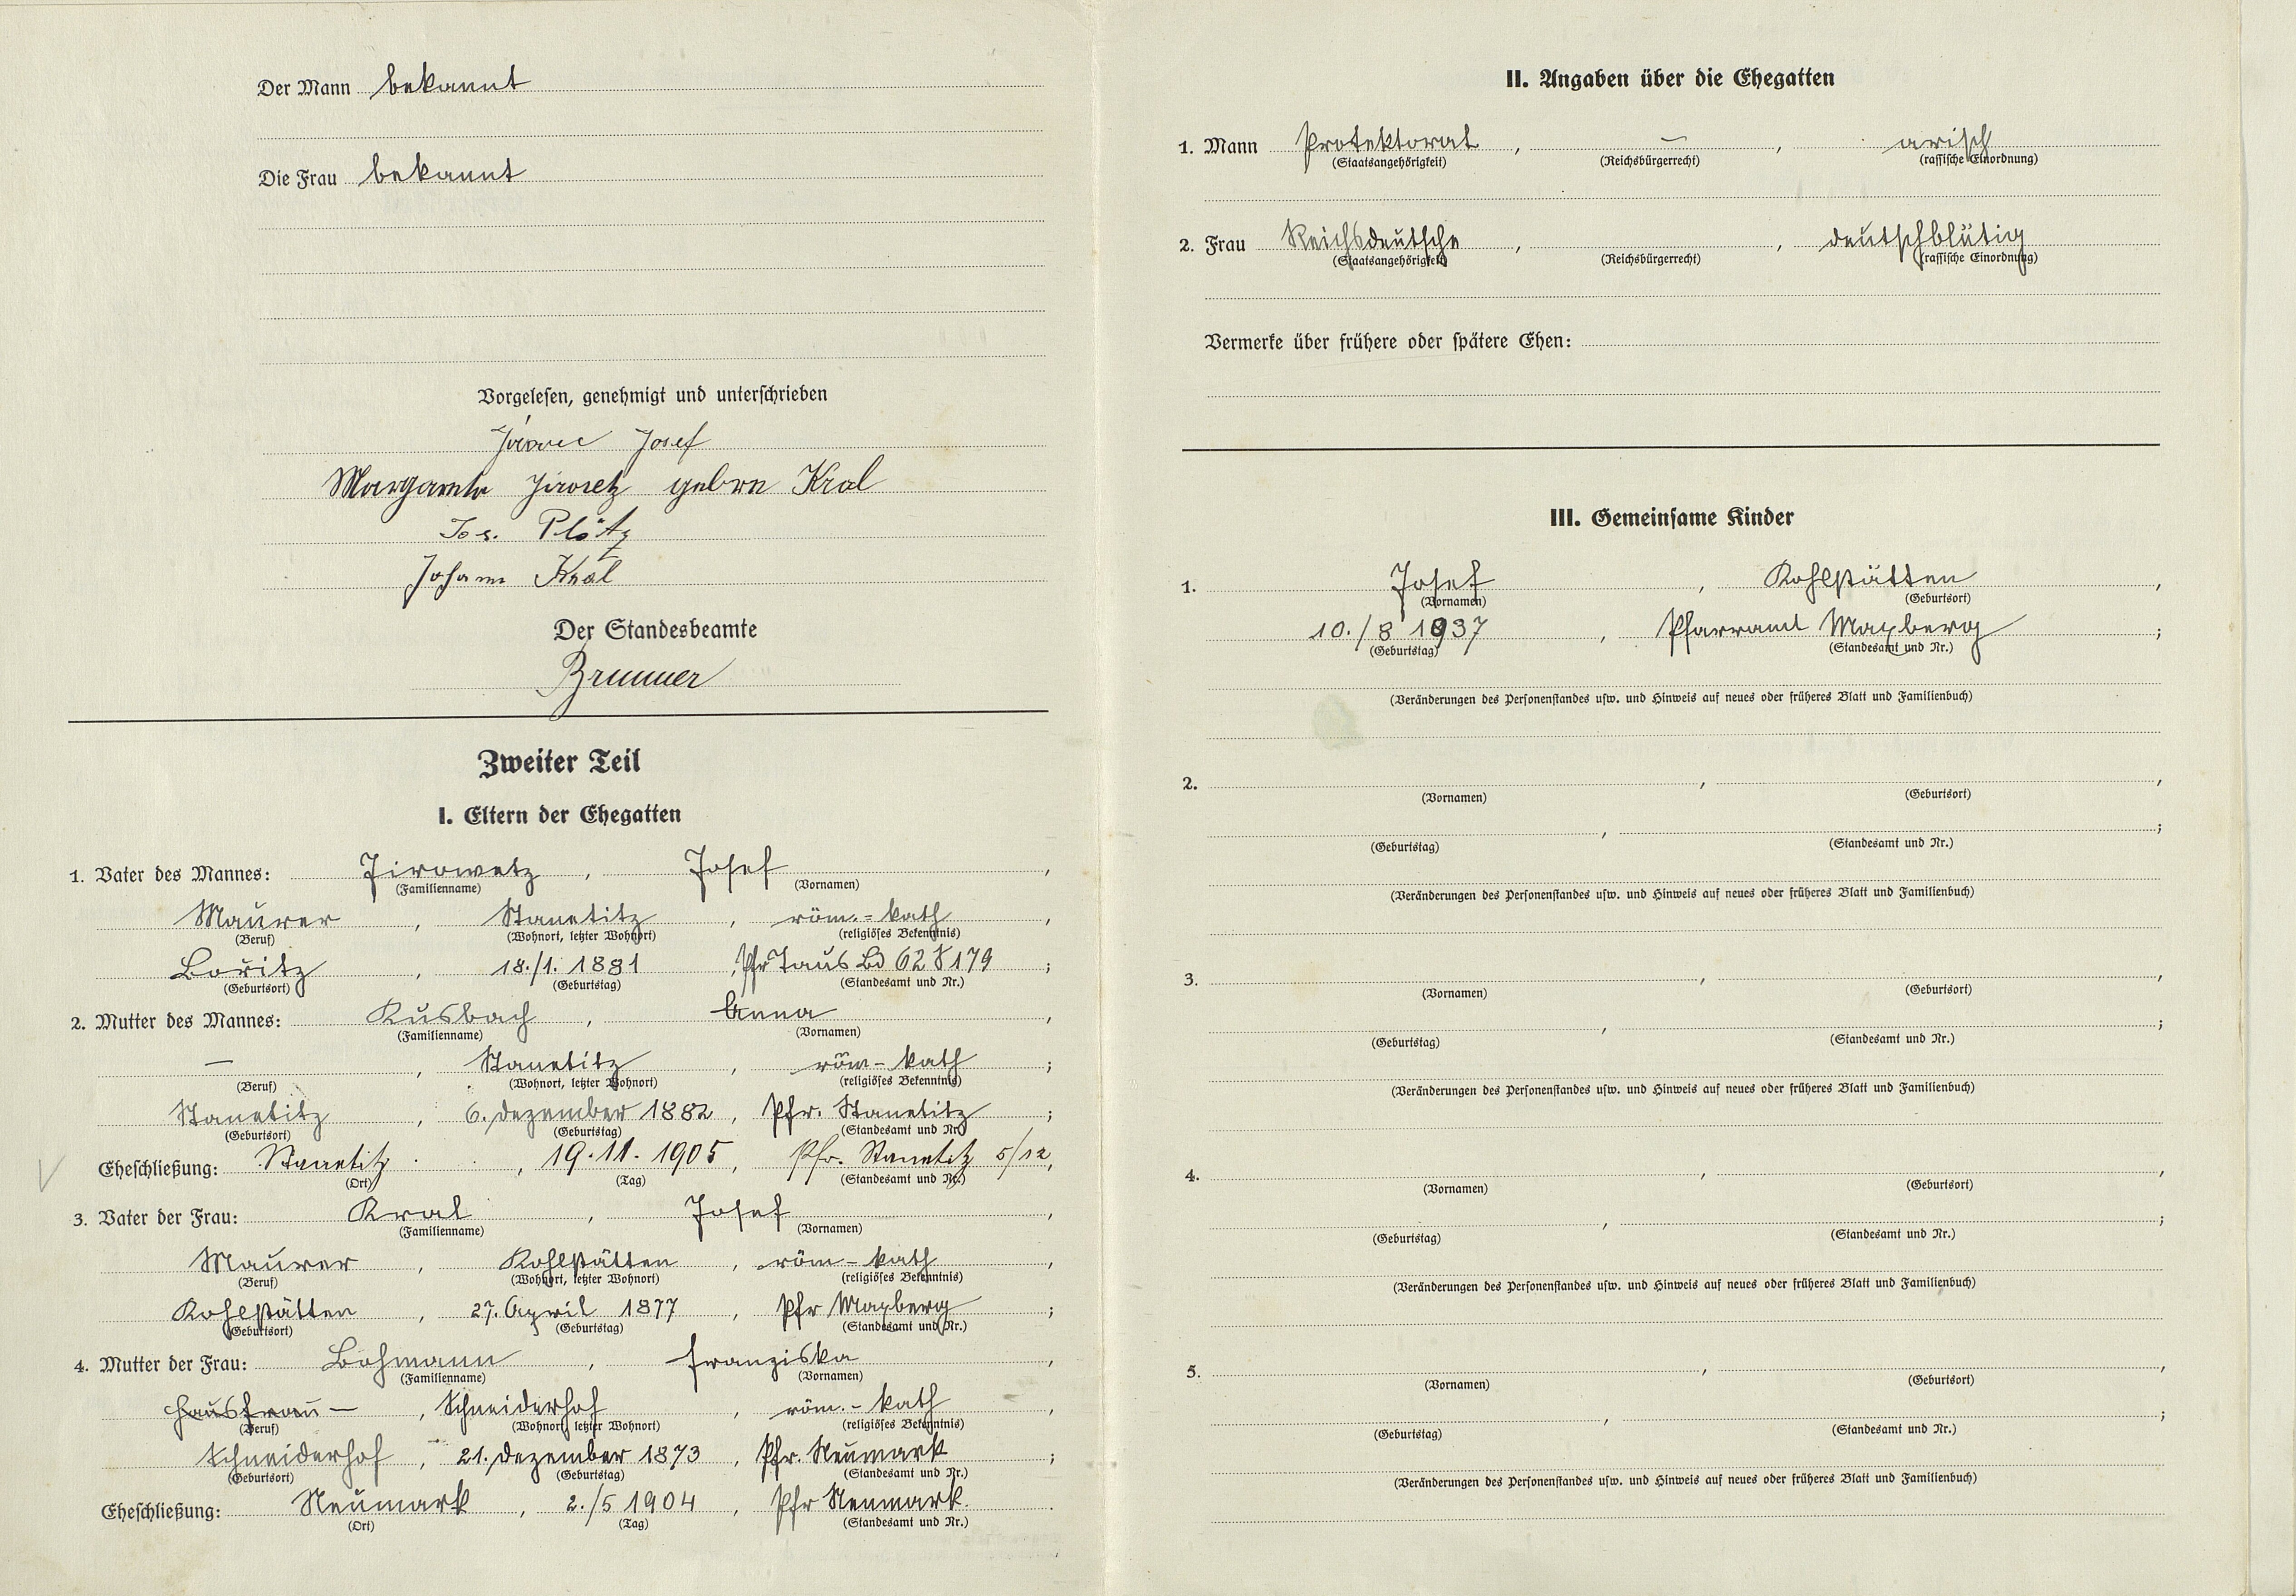 Der Mann bekannt
Die Frau bekannt
Vorgelesen, genehmigt und unterschrieben
Josef
Margareta Jirovetz geborne Kral
Jos. Plötz
Johann Kral
Der Standesbeamte
Brunner
Zweiter Teil
I. Eltern der Ehegatten
1. Vater des Mannes: Jirowetz, Josef,
(Familienname) (Vornamen)
Maurer, Stanetitz, röm.-kath,
(Beruf) (Wohnort, letzter Wohnort) (religiöses Bekenntnis)
Bořitz, 18./1. 1881, Pfr Taus Bd 62 S 179;
(Geburtsort) (Geburtstag) (Standesamt und Nr.)
2. Mutter des Mannes: Kusbach, Anna,
(Familienname) (Vornamen)
—, Stanetitz, röm-kath;
(Beruf) (Wohnort, letzter Wohnort) (religiöses Bekenntnis)
Stanetitz, 6. Dezember 1882, Pfr. Stanetitz;
(Geburtsort) (Geburtstag) (Standesamt und Nr.)
Eheschließung: Stanetitz, 19.11. 1905, Pfr. Stanetitz 5/12,
(Ort) (Tag) (Standesamt und Nr.)
3. Vater der Frau: Kral, Josef,
(Familienname) (Vornamen)
Maurer, Kohlstätten, röm-kath,
(Beruf) (Wohnort, letzter Wohnort) (religiöses Bekenntnis)
Kohlstätten, 27. April 1877, Pfr Maxberg;
(Geburtsort) (Geburtstag) (Standesamt und Nr.)
4. Mutter der Frau: Bohmann, Franziska,
(Familienname) (Vornamen)
Hausfrau —, Schneiderhof, röm.-kath,
(Beruf) (Wohnort, letzter Wohnort) (religiöses Bekenntnis)
Schneiderhof, 21. Dezember 1873, Pfr. Neumark;
(Geburtsort) (Geburtstag) (Standesamt und Nr.)
Eheschließung: Neumark, 2./5 1904, Pfr Neumark.
(Ort) (Tag) (Standesamt und Nr.)
II. Angaben über die Ehegatten
1. Mann Protektorat, —, arisch
(Staatsangehörigkeit) (Reichsbürgerrecht) (rassische Einordnung)
2. Frau Reichsdeutsche, , deutschblütig
(Staatsangehörigkeit) (Reichsbürgerrecht) (rassische Einordnung)
Vermerke über frühere oder spätere Ehen:
III. Gemeinsame Kinder
1. Josef, Kohlstätten,
(Vornamen) (Geburtsort)
10./8 1937, Pfarramt Maxberg;
(Geburtstag) (Standesamt und Nr.)
(Veränderungen des Personenstandes usw. und Hinweis auf neues oder früheres Blatt und Familienbuch)
2. , ,
(Vornamen) (Geburtsort)
, ;
(Geburtstag) (Standesamt und Nr.)
(Veränderungen des Personenstandes usw. und Hinweis auf neues oder früheres Blatt und Familienbuch)
3. , ,
(Vornamen) (Geburtsort)
, ;
(Geburtstag) (Standesamt und Nr.)
(Veränderungen des Personenstandes usw. und Hinweis auf neues oder früheres Blatt und Familienbuch)
4. , ,
(Vornamen) (Geburtsort)
, ;
(Geburtstag) (Standesamt und Nr.)
(Veränderungen des Personenstandes usw. und Hinweis auf neues oder früheres Blatt und Familienbuch)
5. , ,
(Vornamen) (Geburtsort)
, ;
(Geburtstag) (Standesamt und Nr.)
(Veränderungen des Personenstandes usw. und Hinweis auf neues oder früheres Blatt und Familienbuch)